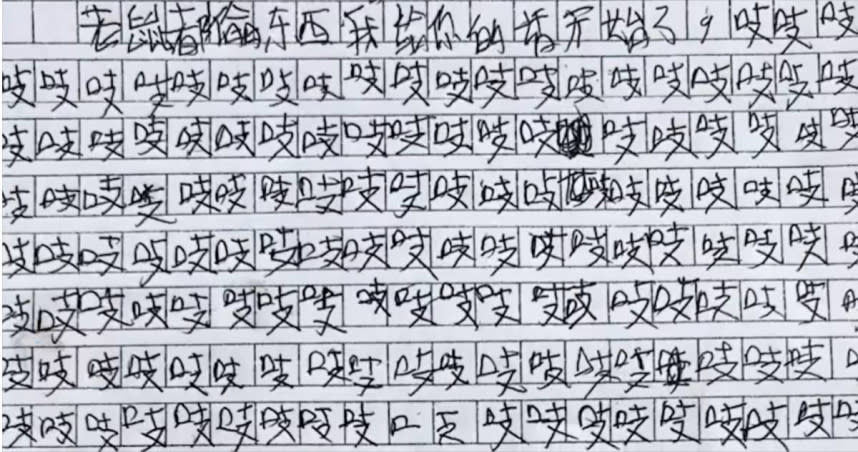 老鼠都偷东西我给你开始了，吱吱吱
吱吱吱吱吱吱吱吱吱吱吱吱吱吱吱吱吱吱吱吱
吱吱吱吱吱吱吱吱吱吱吱吱吱吱吱吱吱吱吱
吱吱吱吱吱吱吱吱吱吱吱吱吱吱吱吱吱吱吱
吱吱吱吱吱吱吱吱吱吱吱吱吱吱吱吱吱吱吱
吱吱吱吱吱吱吱吱吱吱吱吱吱吱吱吱吱吱吱
吱吱吱吱吱吱吱吱吱吱吱吱吱吱吱吱吱吱
吱吱吱吱吱吱吱吱吱口吱吱吱吱吱吱吱吱吱